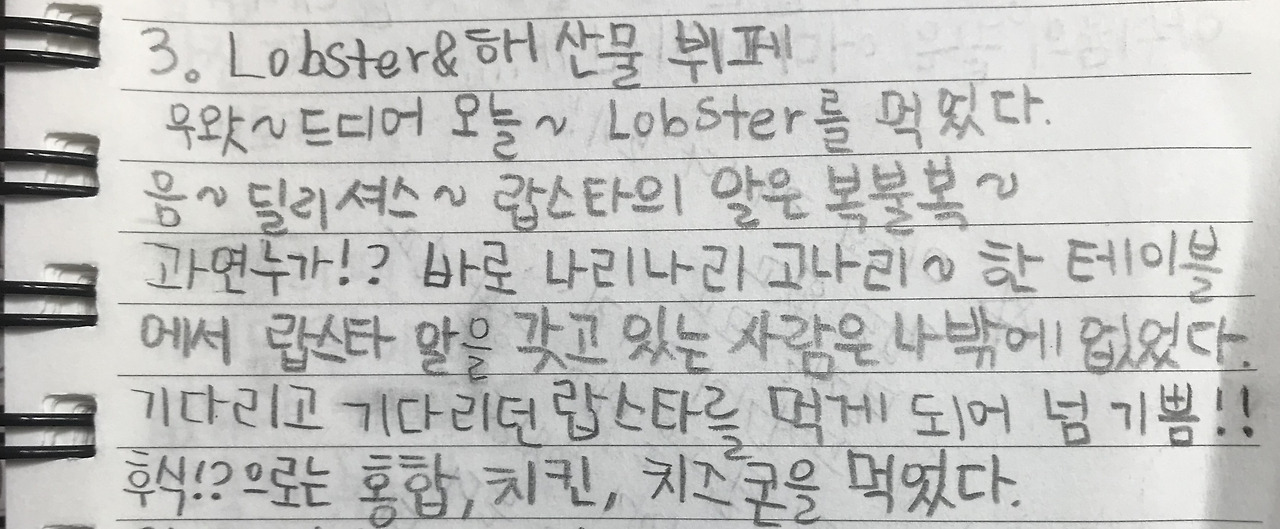 3. Lobster&해산물 뷔페
우왓~드디어 오늘~ Lobster를 먹었다.
음~딜리셔스~ 랍스타의 알은 복불복~
과연누가!? 바로 나리나리 고나리~ 한 테이블
에서 랍스타 알을 갖고 있는 사람은 나밖에 없었다.
기다리고 기다리던 랍스타를 먹게 되어 넘 기쁨!!
후식!?으로는 홍합, 치킨, 치즈콘을 먹었다.